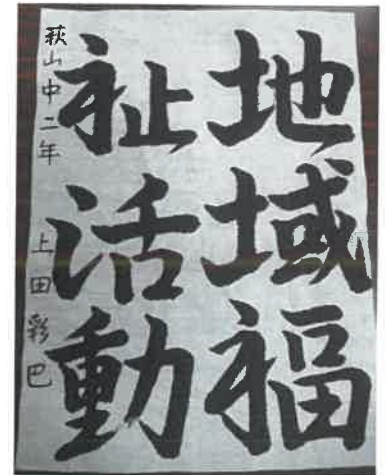 地域福
祉活動
萩山中二年 上田彩巴